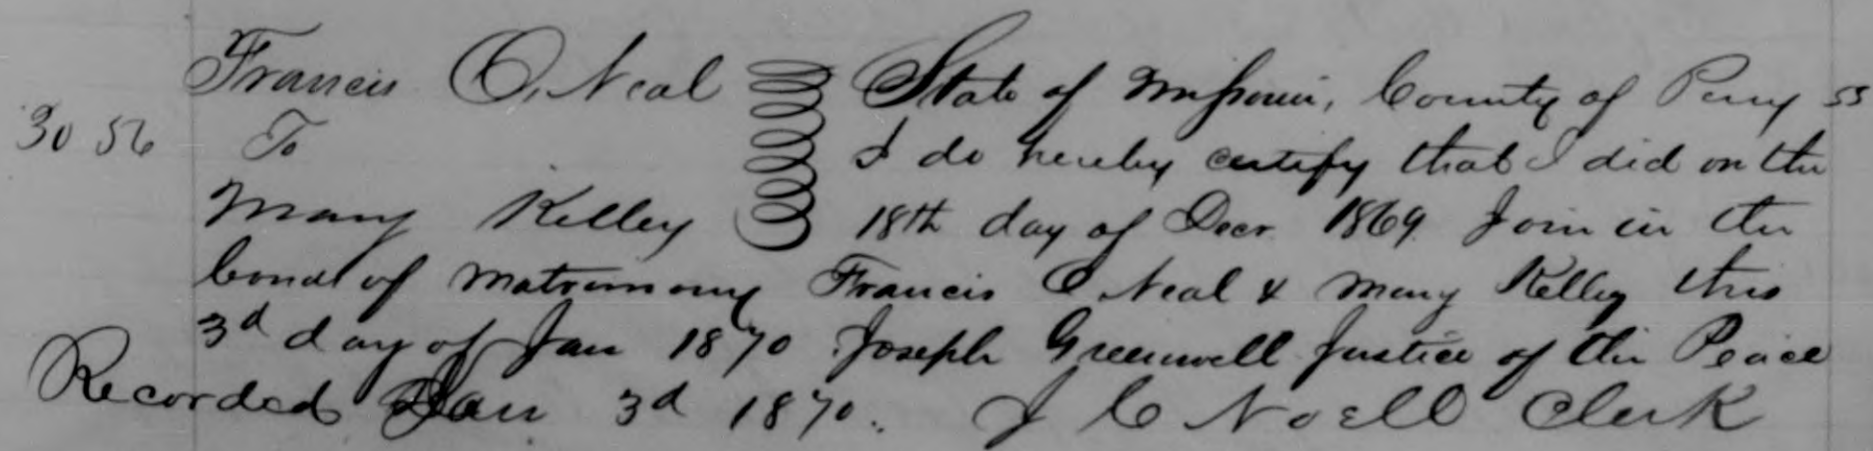 Francis O. Neal State of Missouri, County of Perry ss
30 56 To I do hereby certify that I did on the
Mary Kelley 18th day of Decr 1869. Join in the
bonds of matrimony Francis O. Neal & Mary Kelley this
3d day of Jan 1870 Joseph Greenwell Justice of the Peace
Recorded Jan 3d 1870. J C Noell Clerk